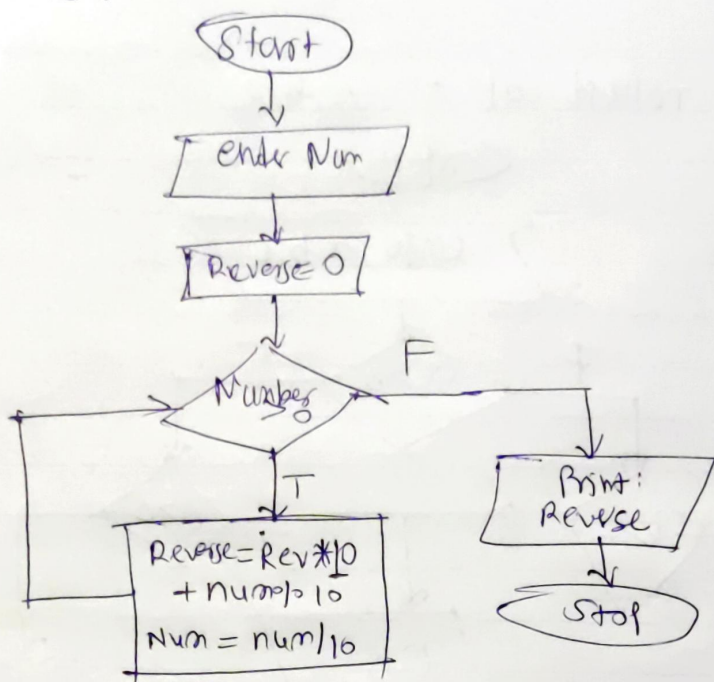 Start
Enter Num
Reverse = 0
Number
0
F
T
Reverse = Rev*10
+ num%10
Num = num/10
Print:
Reverse
Stop